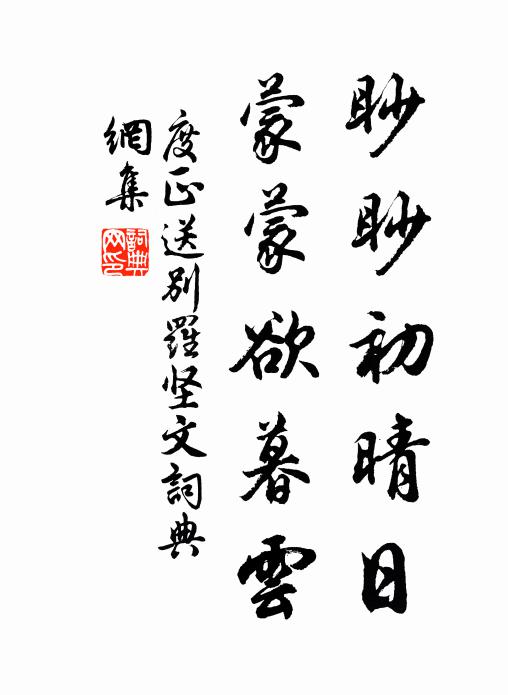 眇眇初晴日
蒙蒙欲暮雲
度正送別羅坚文詞典
網集
詞典網印